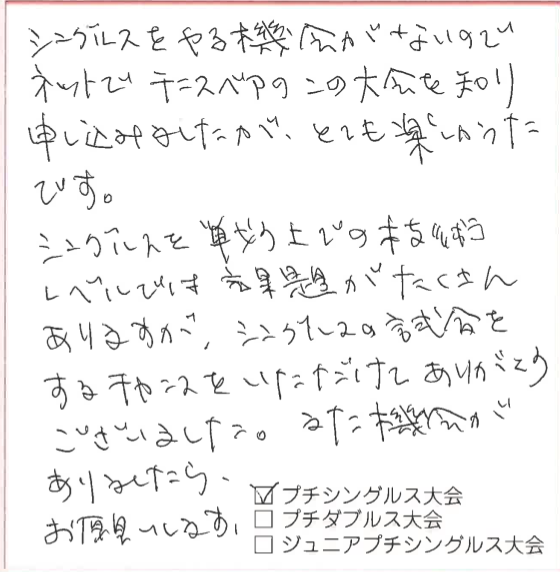 シングルスをやる機会がないので
ネットでテニスベアのこの大会を知り
申し込みましたが、とても楽しかった
です。
シングルスを戦う上での技術
レベルでは課題がたくさん
ありますが、シングルスの試合を
するチャンスをいただけてありがとう
ございました。また機会が
ありましたら、
お願いします。
☑ プチシングルス大会
☐ プチダブルス大会
☐ ジュニアプチシングルス大会